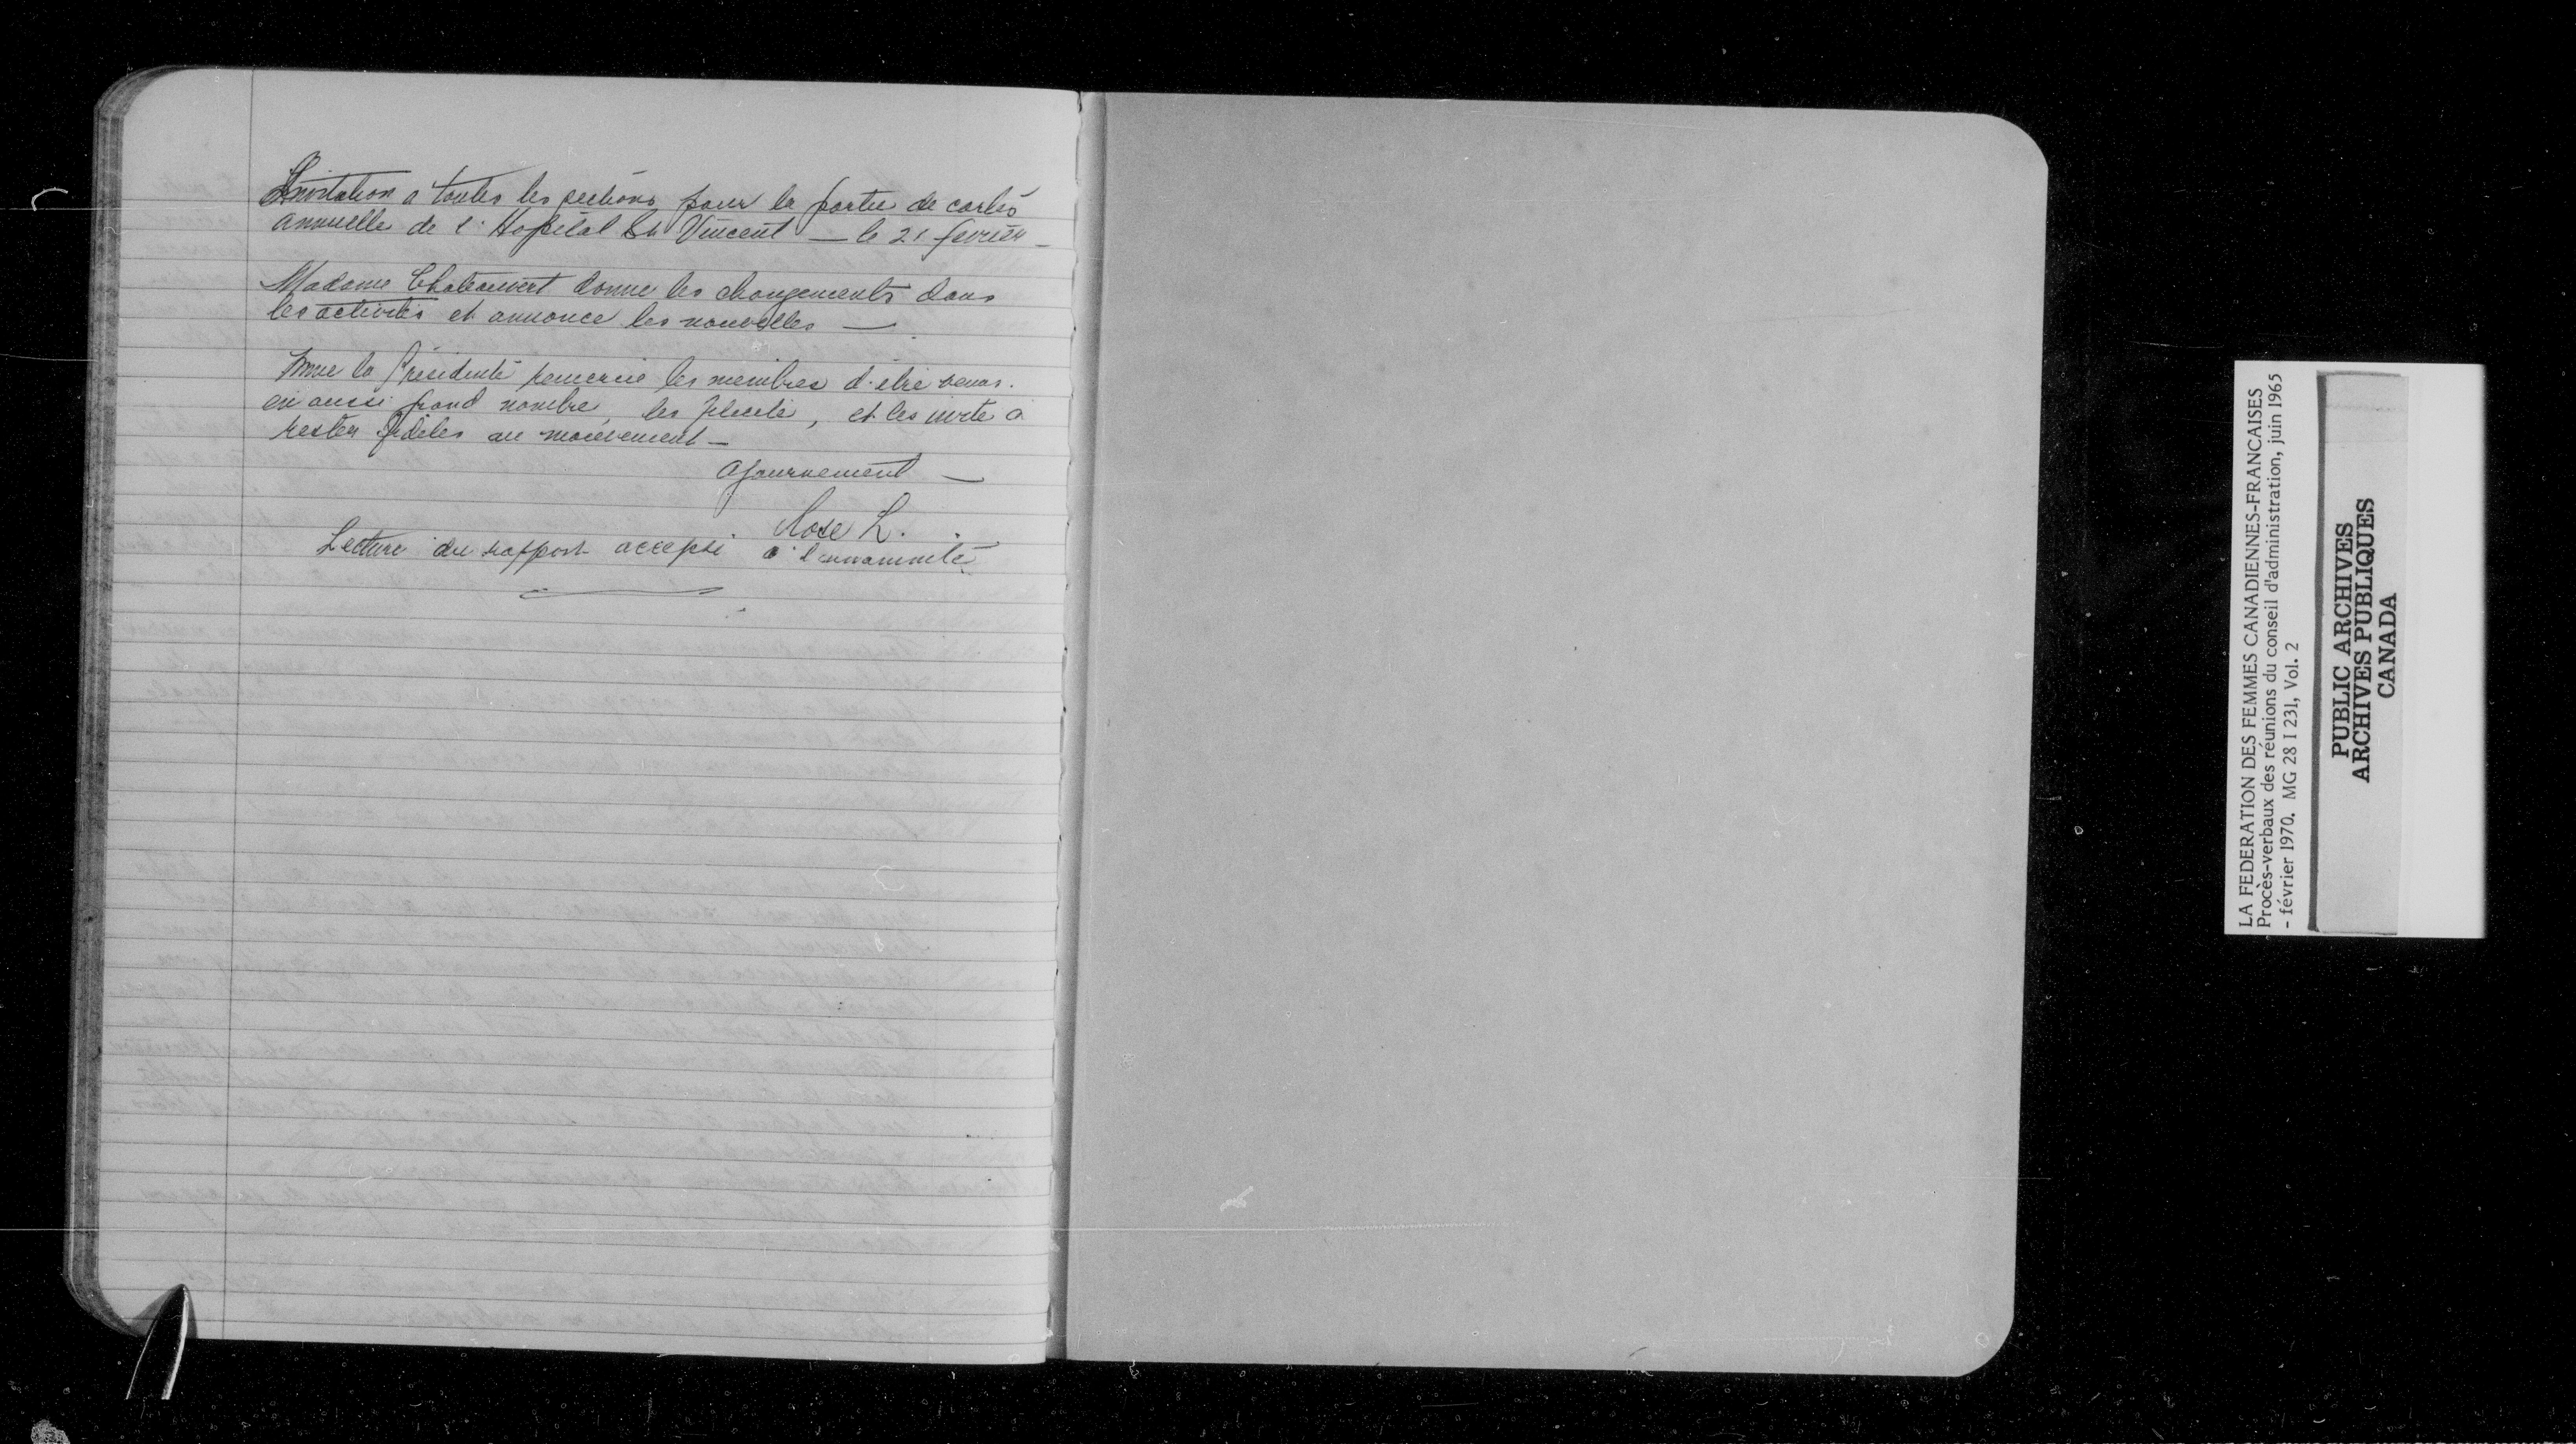 Invitation a toutes les sections pour la partie de cartes
annuelle de l'Hopital St Vincent — le 21 fevrier —
Madame Chateauvert donne les changements dans
les activités et annonce les nouvelles —
Mme la Présidente remercie les membres d'être venus
en aussi grand nombre, les félicite, et les invite a
rester fidèles au mouvement —
Ajournement —
Rose L.
Lecture du rapport accepté a l'unanimité
LA FEDERATION DES FEMMES CANADIENNES-FRANCAISES
Procès-verbaux des réunions du conseil d'administration, juin 1965
- février 1970. MG 28 I 231, Vol. 2
PUBLIC ARCHIVES
ARCHIVES PUBLIQUES
CANADA